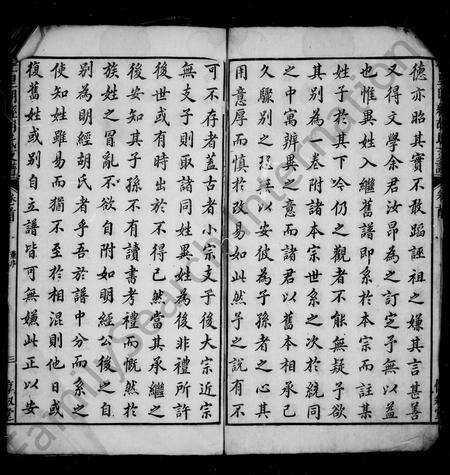 德亦昭其實不敢蹈誣祖之嫌其言甚善
又得文學余君汝昂為之訂定予無以益
也惟異姓入繼舊譜即系於本宗而註某
姓子於其下今仍之觀者不能無疑子欲
其別為卷附諸本宗世系之次於統同
之中寓辨異之意而諸君以舊本相承已
久驟別之恐無以委曲為子孫者之心其
用意厚而慎於改易如此然予之說有不
可不存者蓋古者小宗支子後大宗近宗
無支子則取諸同姓異姓為後非禮所許
後世或有時出於不得已然當其承繼之
後安知其子孫不有讀書考禮而慨然於
族姓之冒亂不欲自附如明經公後之自
別為明經胡氏者乎吾於譜中分而系之
使知姓雖易而猶不至於相混則他日或
復舊姓或別自立譜皆可無嫌此正以安
明經胡氏支譜
卷首
三
FamilySearch International